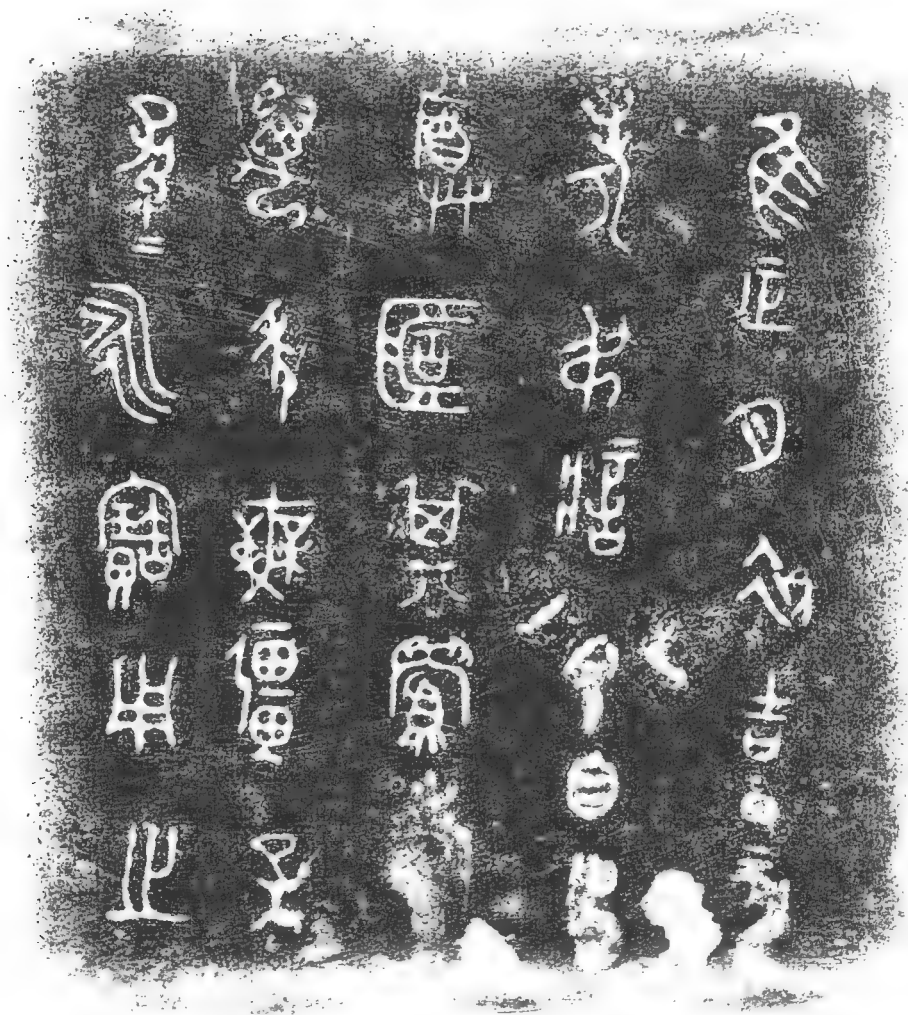 隹正月初吉丁亥
考弔父自乍
尊𠤳其眉壽
萬年無疆子
孫=永寶用之